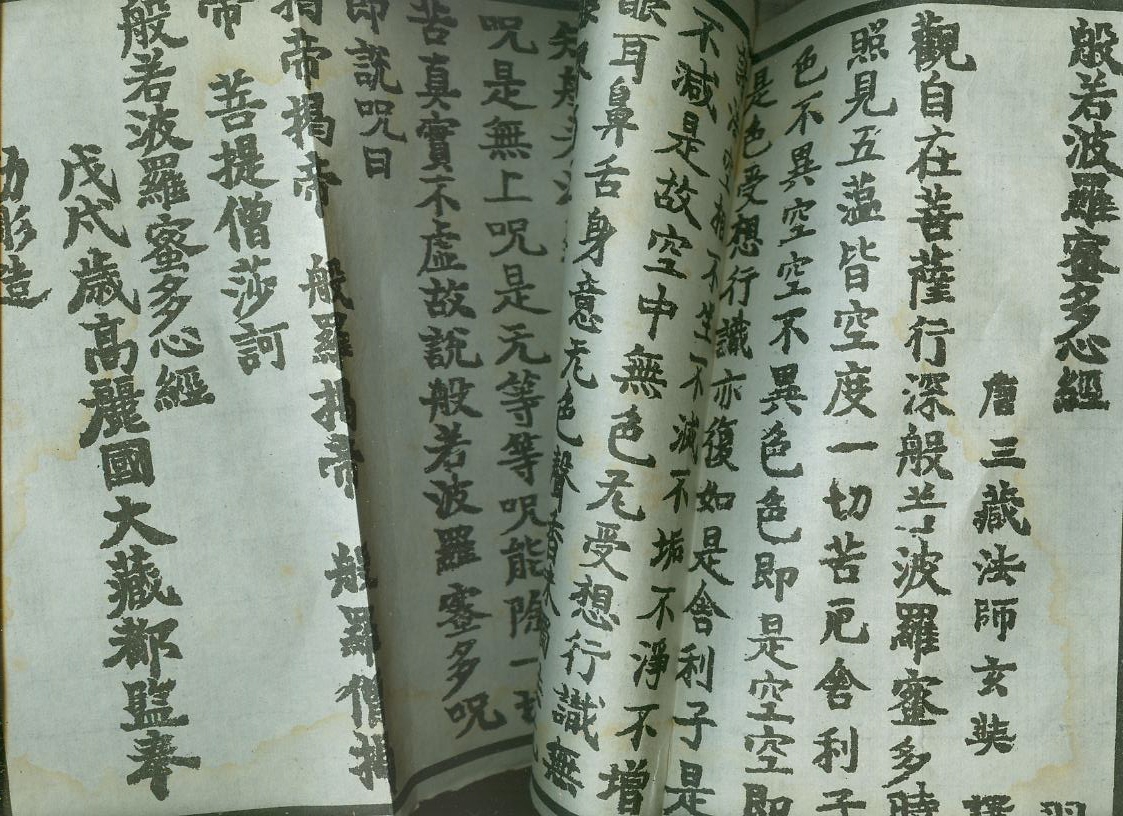 般若波羅蜜多心經
唐三藏法師玄奘 譯
觀自在菩薩行深般若波羅蜜多時
照見五薀皆空度一切苦厄舍利子
色不異空空不異色色即是空空即
是色受想行識亦復如是舍利子是
空相不生不滅不垢不淨不增
不減是故空中無色无受想行識無
眼耳鼻舌身意无色聲香味
知般
咒是無上咒是无等等咒能除一切
苦真實不虛故說般若波羅蜜多咒
即說咒曰
揭帝揭帝 般羅揭帝 般羅僧揭
帝 菩提僧莎訶
般若波羅蜜多心經
戊戌歲高麗國大藏都監奉
勅彫造